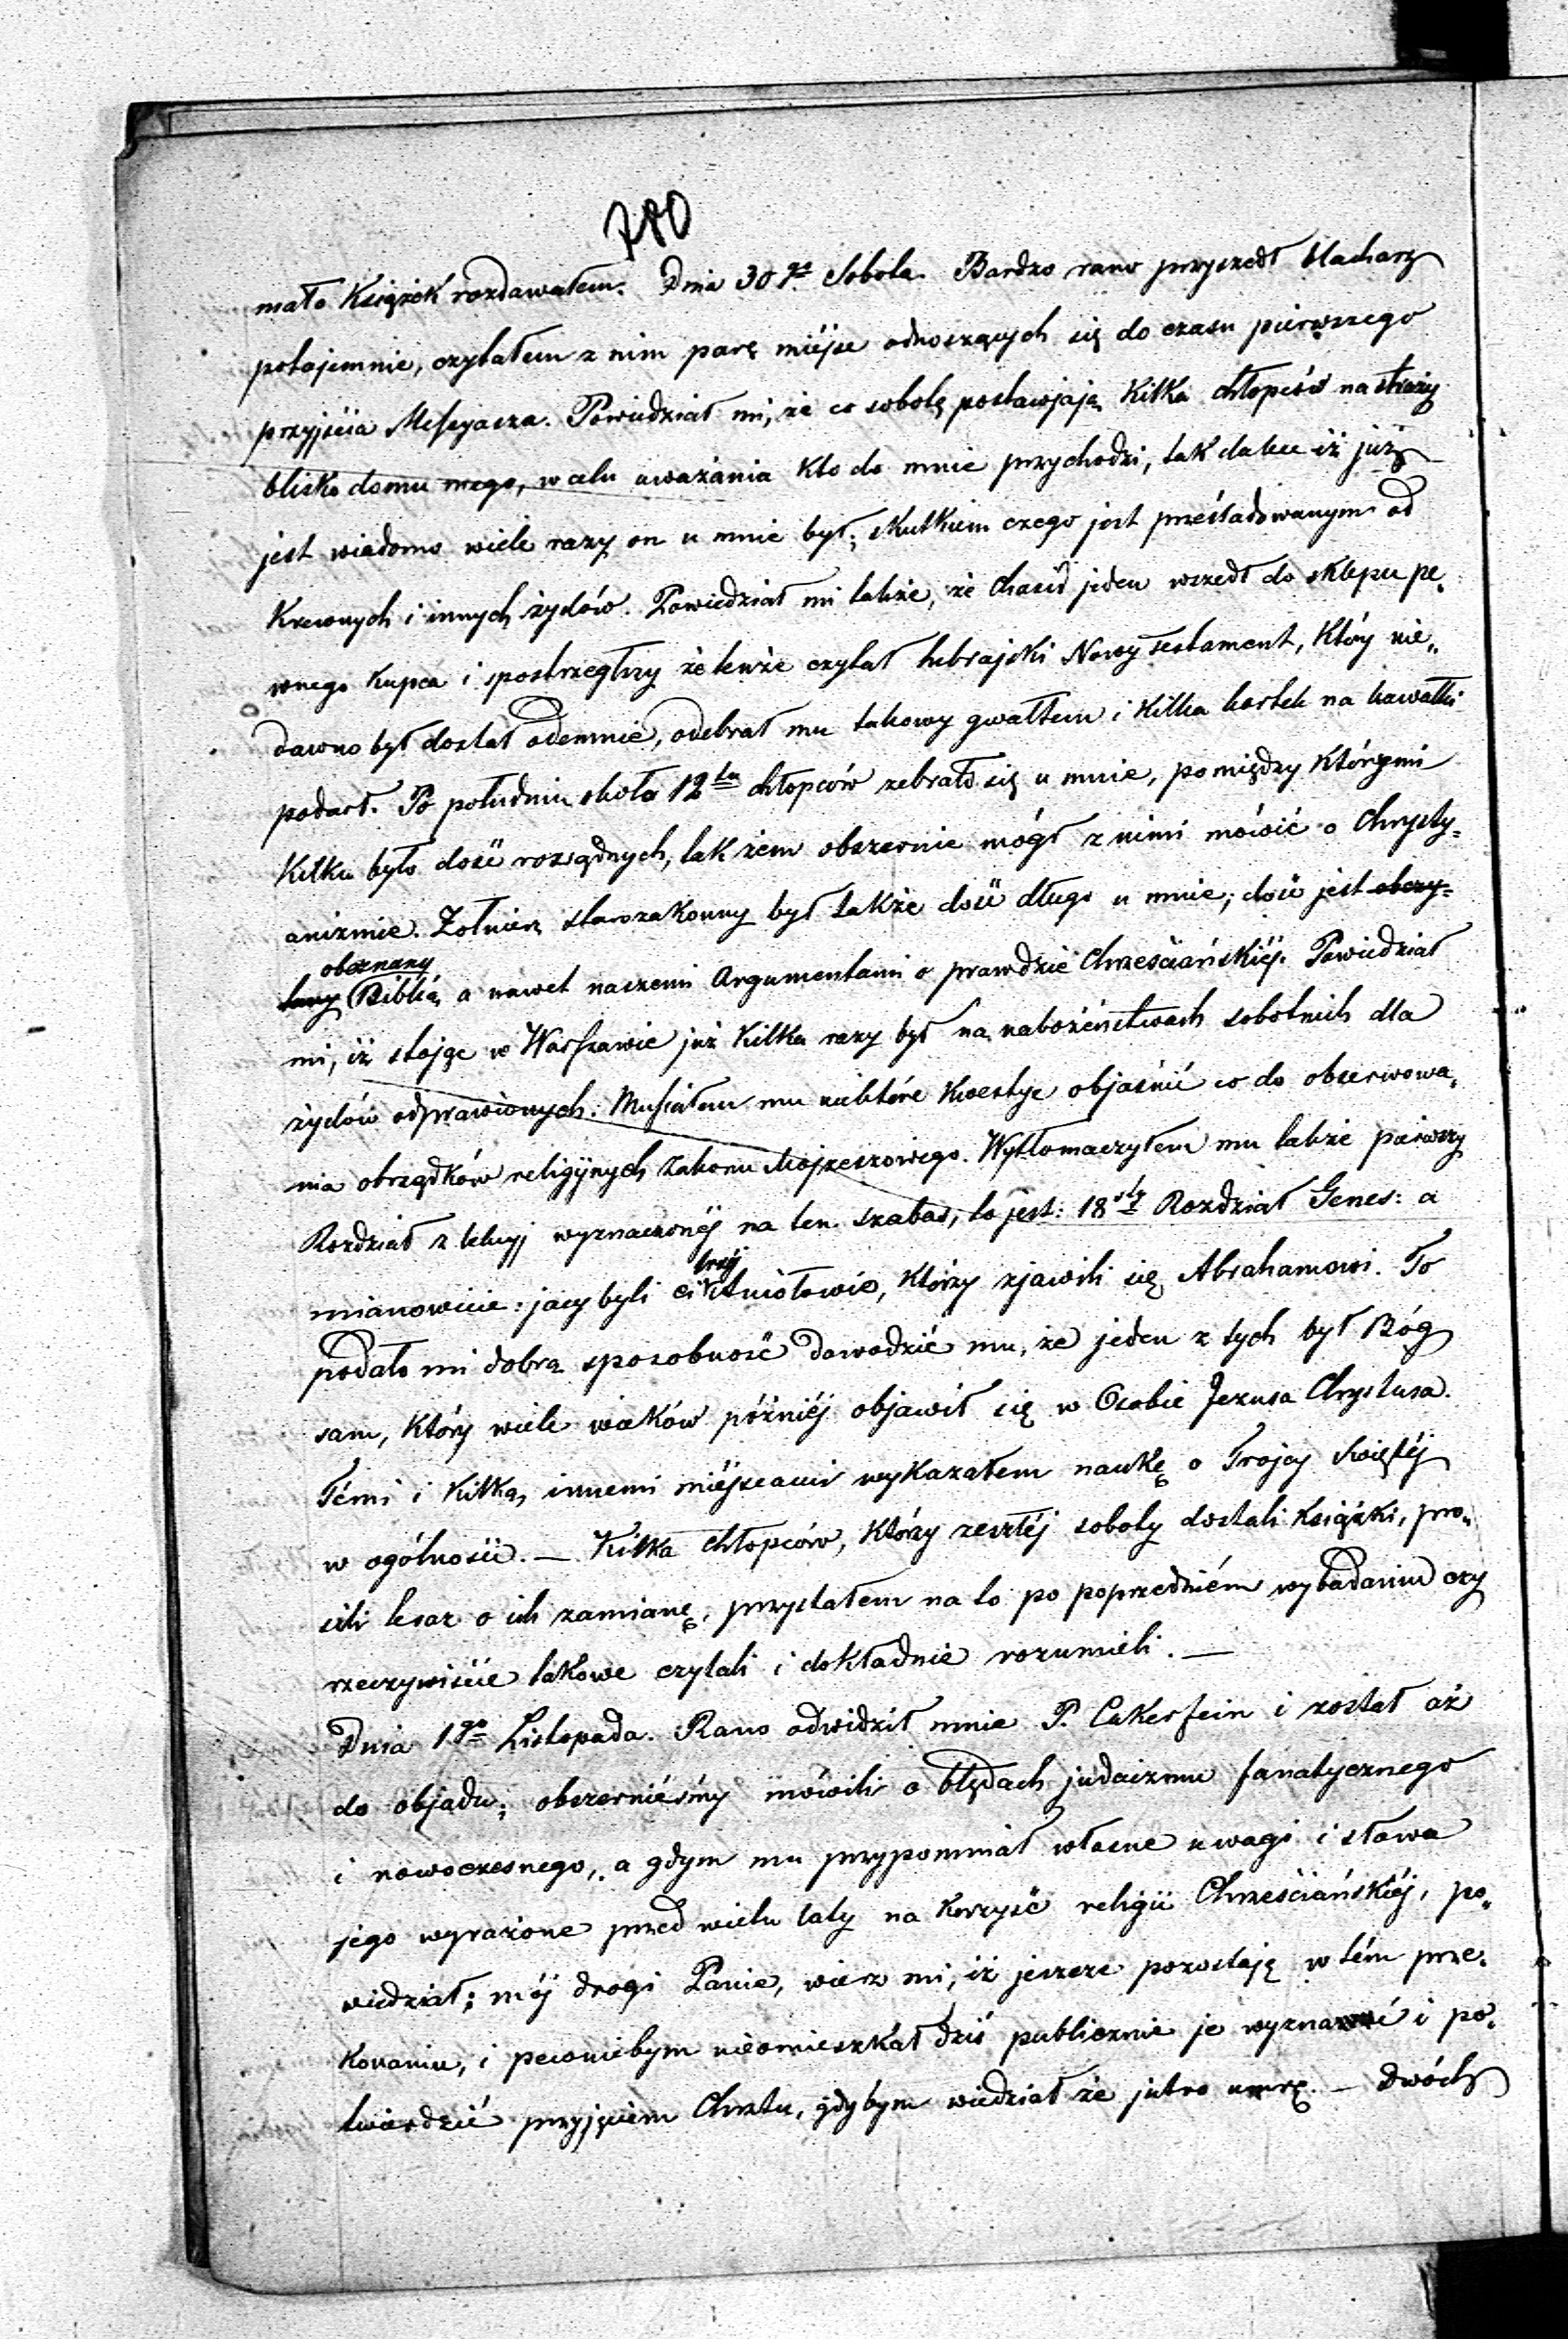 780
mało Książek rozdawałem. Dnia 30go Sobota. Bardzo rano przyszedł blacharz
potajemnie, czytałem z nim parę miéjsc odnoszących się do czasu pierwszego
przyjścia Messyasza. Powiedział mi, że co sobotę postawjają Kilka chłopców na straży
blisko domu mego, w celu uważania Kto do mnie przychodzi, tak dalece iż już
jest wiadomo wiele razy on u mnie był; skutkiem czego jest prześladowanym od
Krewnych i innych żydów. Powiedział mi także, że Chasid jeden wszedł do sklepu pe„
wnego Kupca i spostrzegłszy że tenże czytał hebrajski Nowy Testament, Który nie„
dawno był dostał odemnie, odebrał mu takowy gwałtem i Kilka kartek na kawałki
podarł. Po południu około 12tu chłopców zebrało się u mnie, pomiędzy Którymi
Kilku było dość rozsądnych, tak żem obszernie mógł z nimi mówić o Chrysty=
anizmie. Żołnierz starozakonny był także dość długo u mnie; dość jest obezy=
obeznany
tany Biblią, a nawet naszemi Argumentami o prawdzie Chrześciańskiéj. Powiedział
mi, iż stojąc w Warszawie już Kilka razy był na nabożeństwach sobotnich dla
żydów odprawionych. Musiałem mu niektóre Kwestye objaśnić co do obserwowa„
nia obrządków religijnych Zakonu Mojżeszowego. Wytłomaczyłem mu także pierwszy
Rozdział z lekcyj wyznaczonéj na ten szabas, to jest: 18sty Rozdział Genes: a
mianowicie: jacy byli ci trzéj Aniołowie, Którzy zjawili się Abrahamowi. To
podało mi dobrą sposobność dowodzić mu, że jeden z tych był Bóg
sam, Który wiele wieków późniéj objawił się w Osobie Jezusa Chrystusa.
Témi i Kilką innemi miéjscami wykazałem naukę o Trójcy Świętéj
w ogólności. — Kilka chłopców, Którzy zeszłéj soboty dostali Książki, pro„
sili teraz o ich zamianę, przystałem na to po poprzedniém wybadaniu czy
rzeczywiście takowe czytali i dokładnie rozumieli. —
Dnia 1go Listopada. Rano odwidził mnie P. Cukerfein i został aż
do objadu; obszerniéśmy mówili o błędach judaizmu fanatycznego
i nowoczesnego, a gdym mu przypomniał własne uwagi i słowa
jego wyrażone przed wielu laty na Korzyść religii Chrześciańskiéj, po„
wiedział; mój drogi Panie, wierz mi, iż jeszcze pozostaję w tém prze„
Konaniu, i pewniebym nieomieszkał dziś publicznie je wyznać i po„
twierdzić przyjęciem Chrztu, gdybym wiedział że jutro umrę. — Dwóch